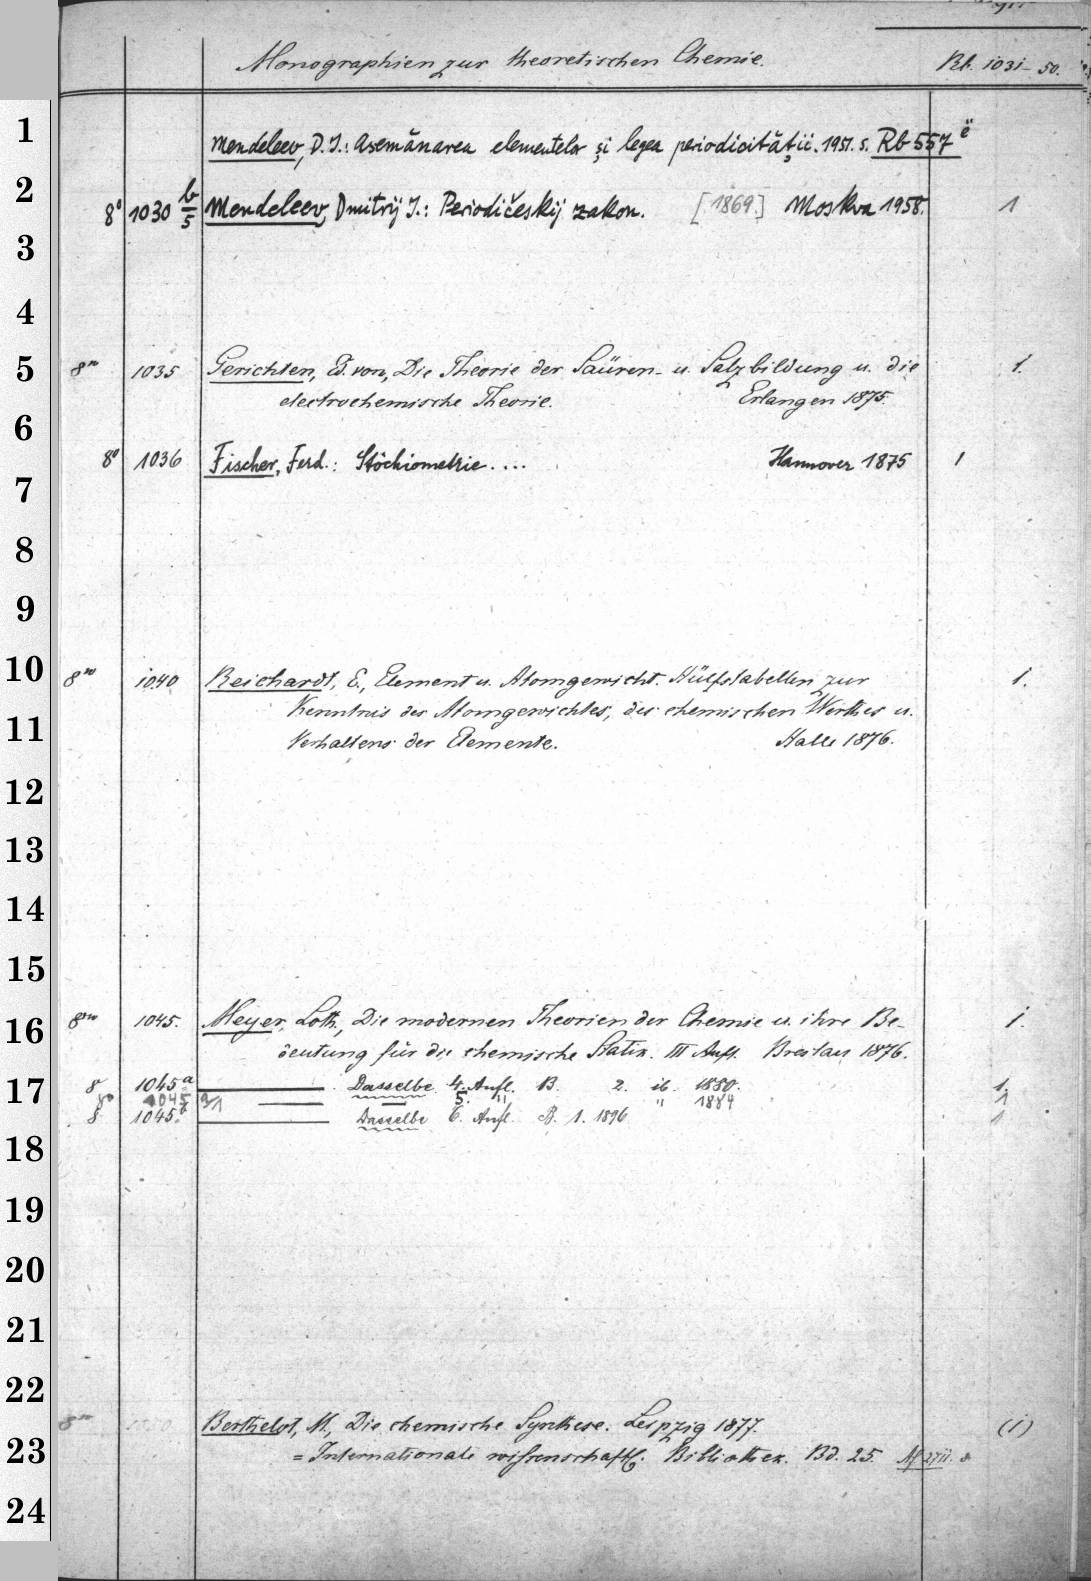 Monographien zur theoretischen Chemie. Rb. 1031-50.
1
Mendeleev, D. I.: Asemănarea elementelor și legea periodicității. 1951. s. Rb 557 ë
2
8° 1030 b/5 Mendeleev, Dmitrij I.: Periodičeskij zakon. [1869.] Moskva 1958. 1
3
4
5
8vo 1035 Gerichten, Ed. von, Die Theorie der Säuren- u. Salzbildung u. die 1.
electrochemische Theorie. Erlangen 1875.
6
8° 1036 Fischer, Ferd.: Stöchiometrie.... Hannover 1875 1
7
8
9
10
8vo 1040 Reichardt, E., Element u. Atomgewicht. Hülfstabellen zur 1.
Kenntnis des Atomgewichtes, des chemischen Werthes u.
11
Verhaltens der Elemente. Halle 1876.
12
13
14
15
16
8vo 1045. Meyer, Loth., Die modernen Theorien der Chemie u. ihre Be- 1.
deutung für die chemische Statik. III Aufl. Breslau 1876.
17
8° 1045a Dasselbe 4. Aufl. B. 2. ib. 1880. 1.
8° 1045 a/1 — 5. " " 1884 1
8 1045b Dasselbe 6. Aufl. B. 1. 1896 1
18
19
20
21
22
8vo 1050 Berthelot, M., Die chemische Synthese. Leipzig 1877. (1)
23
= Internationale wissenschaftl. Bibliothek. Bd. 25.
24